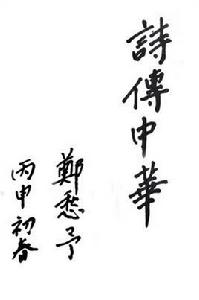 詩傳中華
鄭愁予
丙申初春